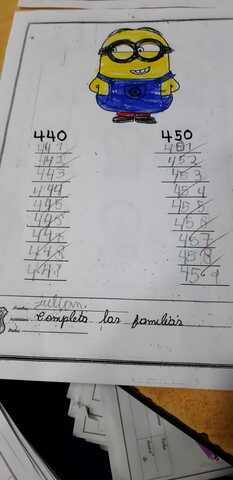 440
441
442
443
444
445
446
447
448
449
450
451
452
453
454
455
456
457
458
459
Julian.
Completa las familias